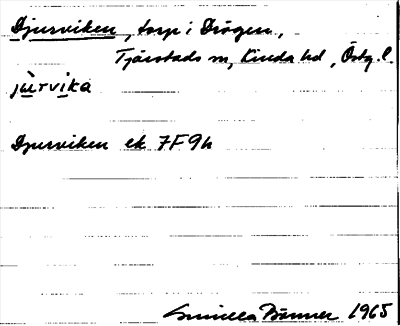 Djursviken, torp i Drögen,
Tjärstads sn, Kinda hd, Östg. l.
jùrvika
Djursviken ek 7F9h
Gunilla 1965